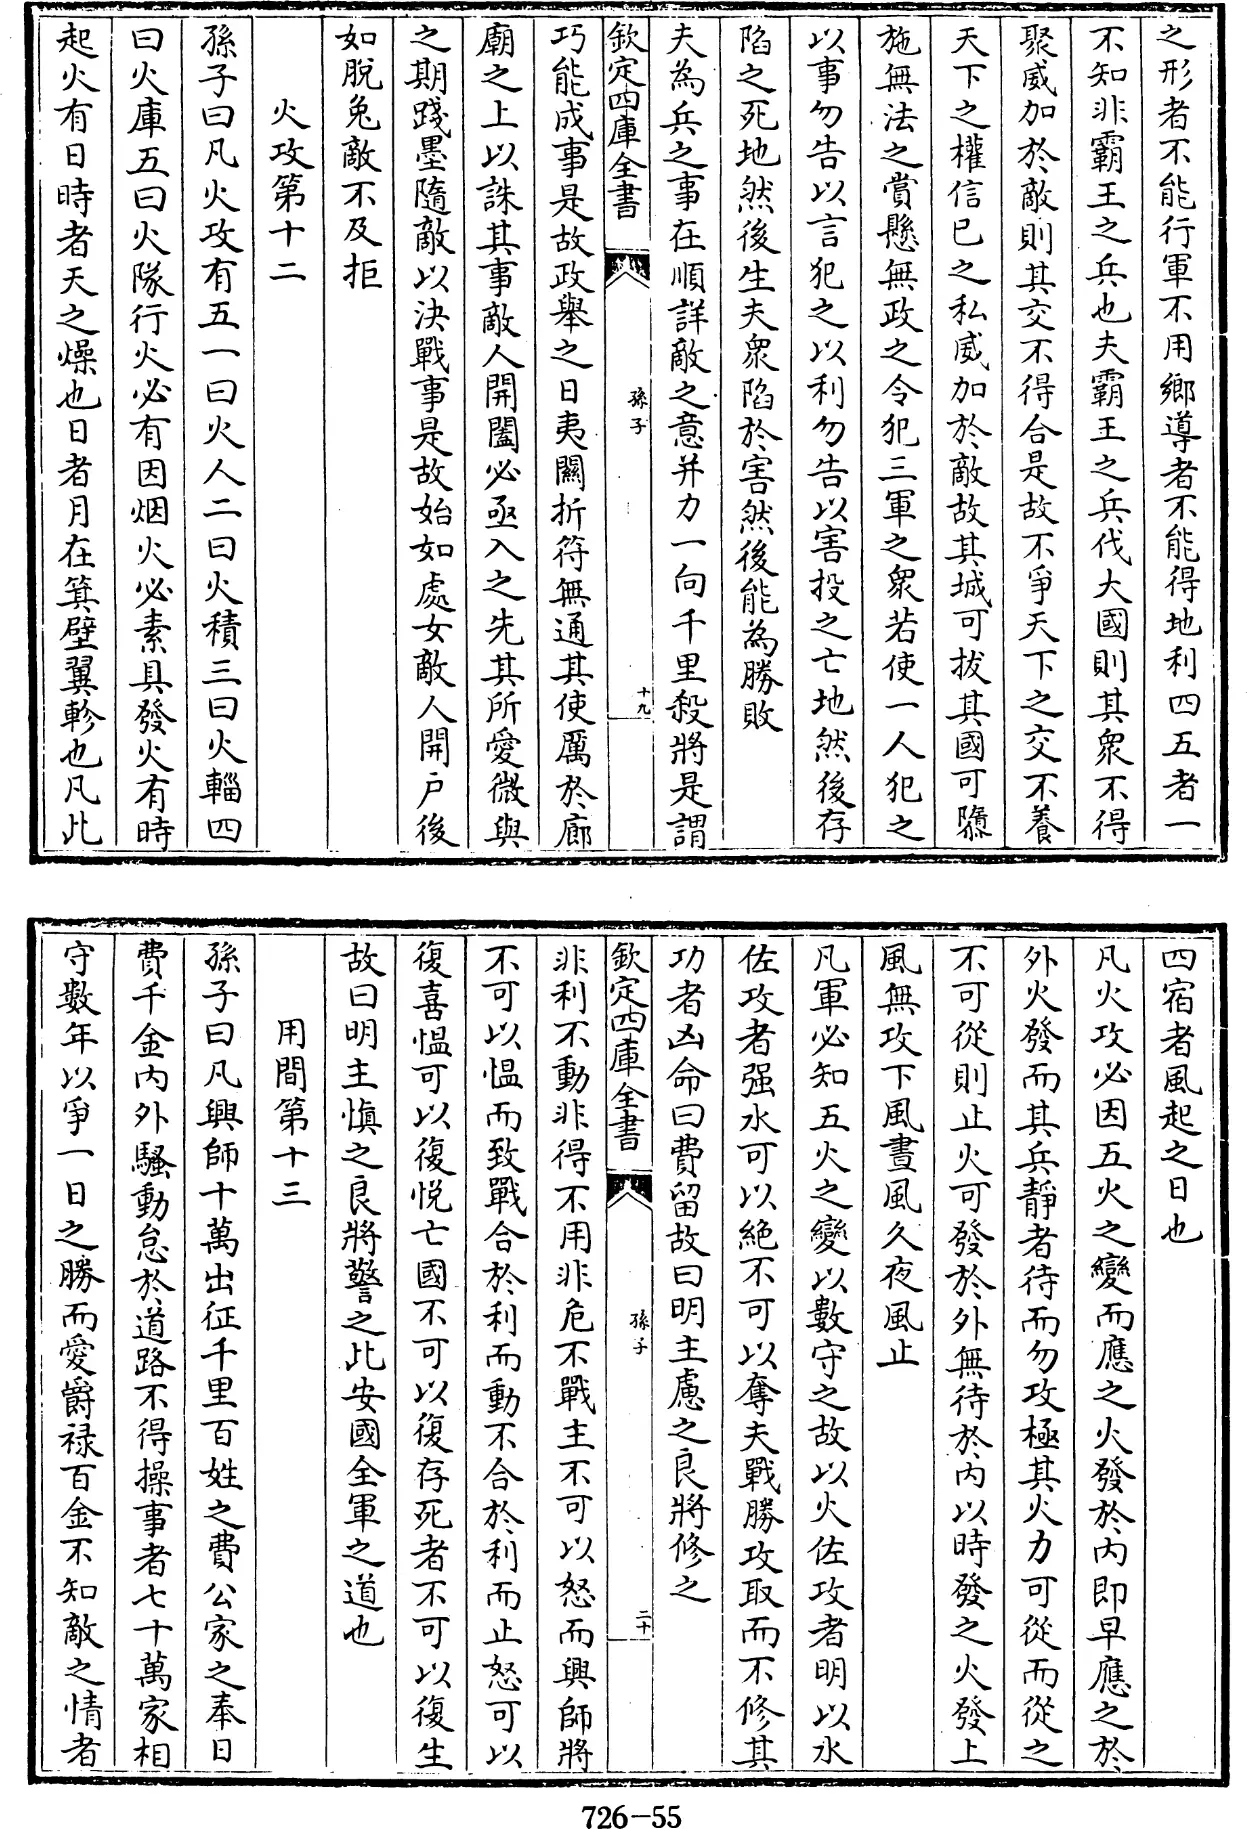 之形者不能行軍不用鄉導者不能得地利四五者一
不知非霸王之兵也夫霸王之兵伐大國則其衆不得
聚威加於敵則其交不得合是故不爭天下之交不養
天下之權信已之私威加於敵故其城可拔其國可隳
施無法之賞懸無政之令犯三軍之衆若使一人犯之
以事勿告以言犯之以利勿告以害投之亡地然後存
陷之死地然後生夫衆陷於害然後能為勝敗
夫為兵之事在順詳敵之意并力一向千里殺將是謂
欽定四庫全書
孫子
十九
巧能成事是故政舉之日夷關折符無通其使厲於廊
廟之上以誅其事敵人開闔必亟入之先其所愛微與
之期踐墨隨敵以決戰事是故始如處女敵人開户後
如脫兔敵不及拒
火攻第十二
孫子曰凡火攻有五一曰火人二曰火積三曰火輜四
曰火庫五曰火隊行火必有因烟火必素具發火有時
起火有日時者天之燥也日者月在箕壁翼軫也凡此
四宿者風起之日也
凡火攻必因五火之變而應之火發於内即早應之於
外火發而其兵靜者待而勿攻極其火力可從而從之
不可從則止火可發於外無待於内以時發之火發上
風無攻下風晝風久夜風止
凡軍必知五火之變以數守之故以火佐攻者明以水
佐攻者强水可以絶不可以奪夫戰勝攻取而不修其
功者凶命曰費留故曰明主慮之良將修之
欽定四庫全書
孫子
二十
非利不動非得不用非危不戰主不可以怒而興師將
不可以愠而致戰合於利而動不合於利而止怒可以
復喜愠可以復悦亡國不可以復存死者不可以復生
故曰明主慎之良將警之此安國全軍之道也
用間第十三
孫子曰凡興師十萬出征千里百姓之費公家之奉日
費千金内外騷動怠於道路不得操事者七十萬家相
守數年以爭一日之勝而愛爵禄百金不知敵之情者
726-55